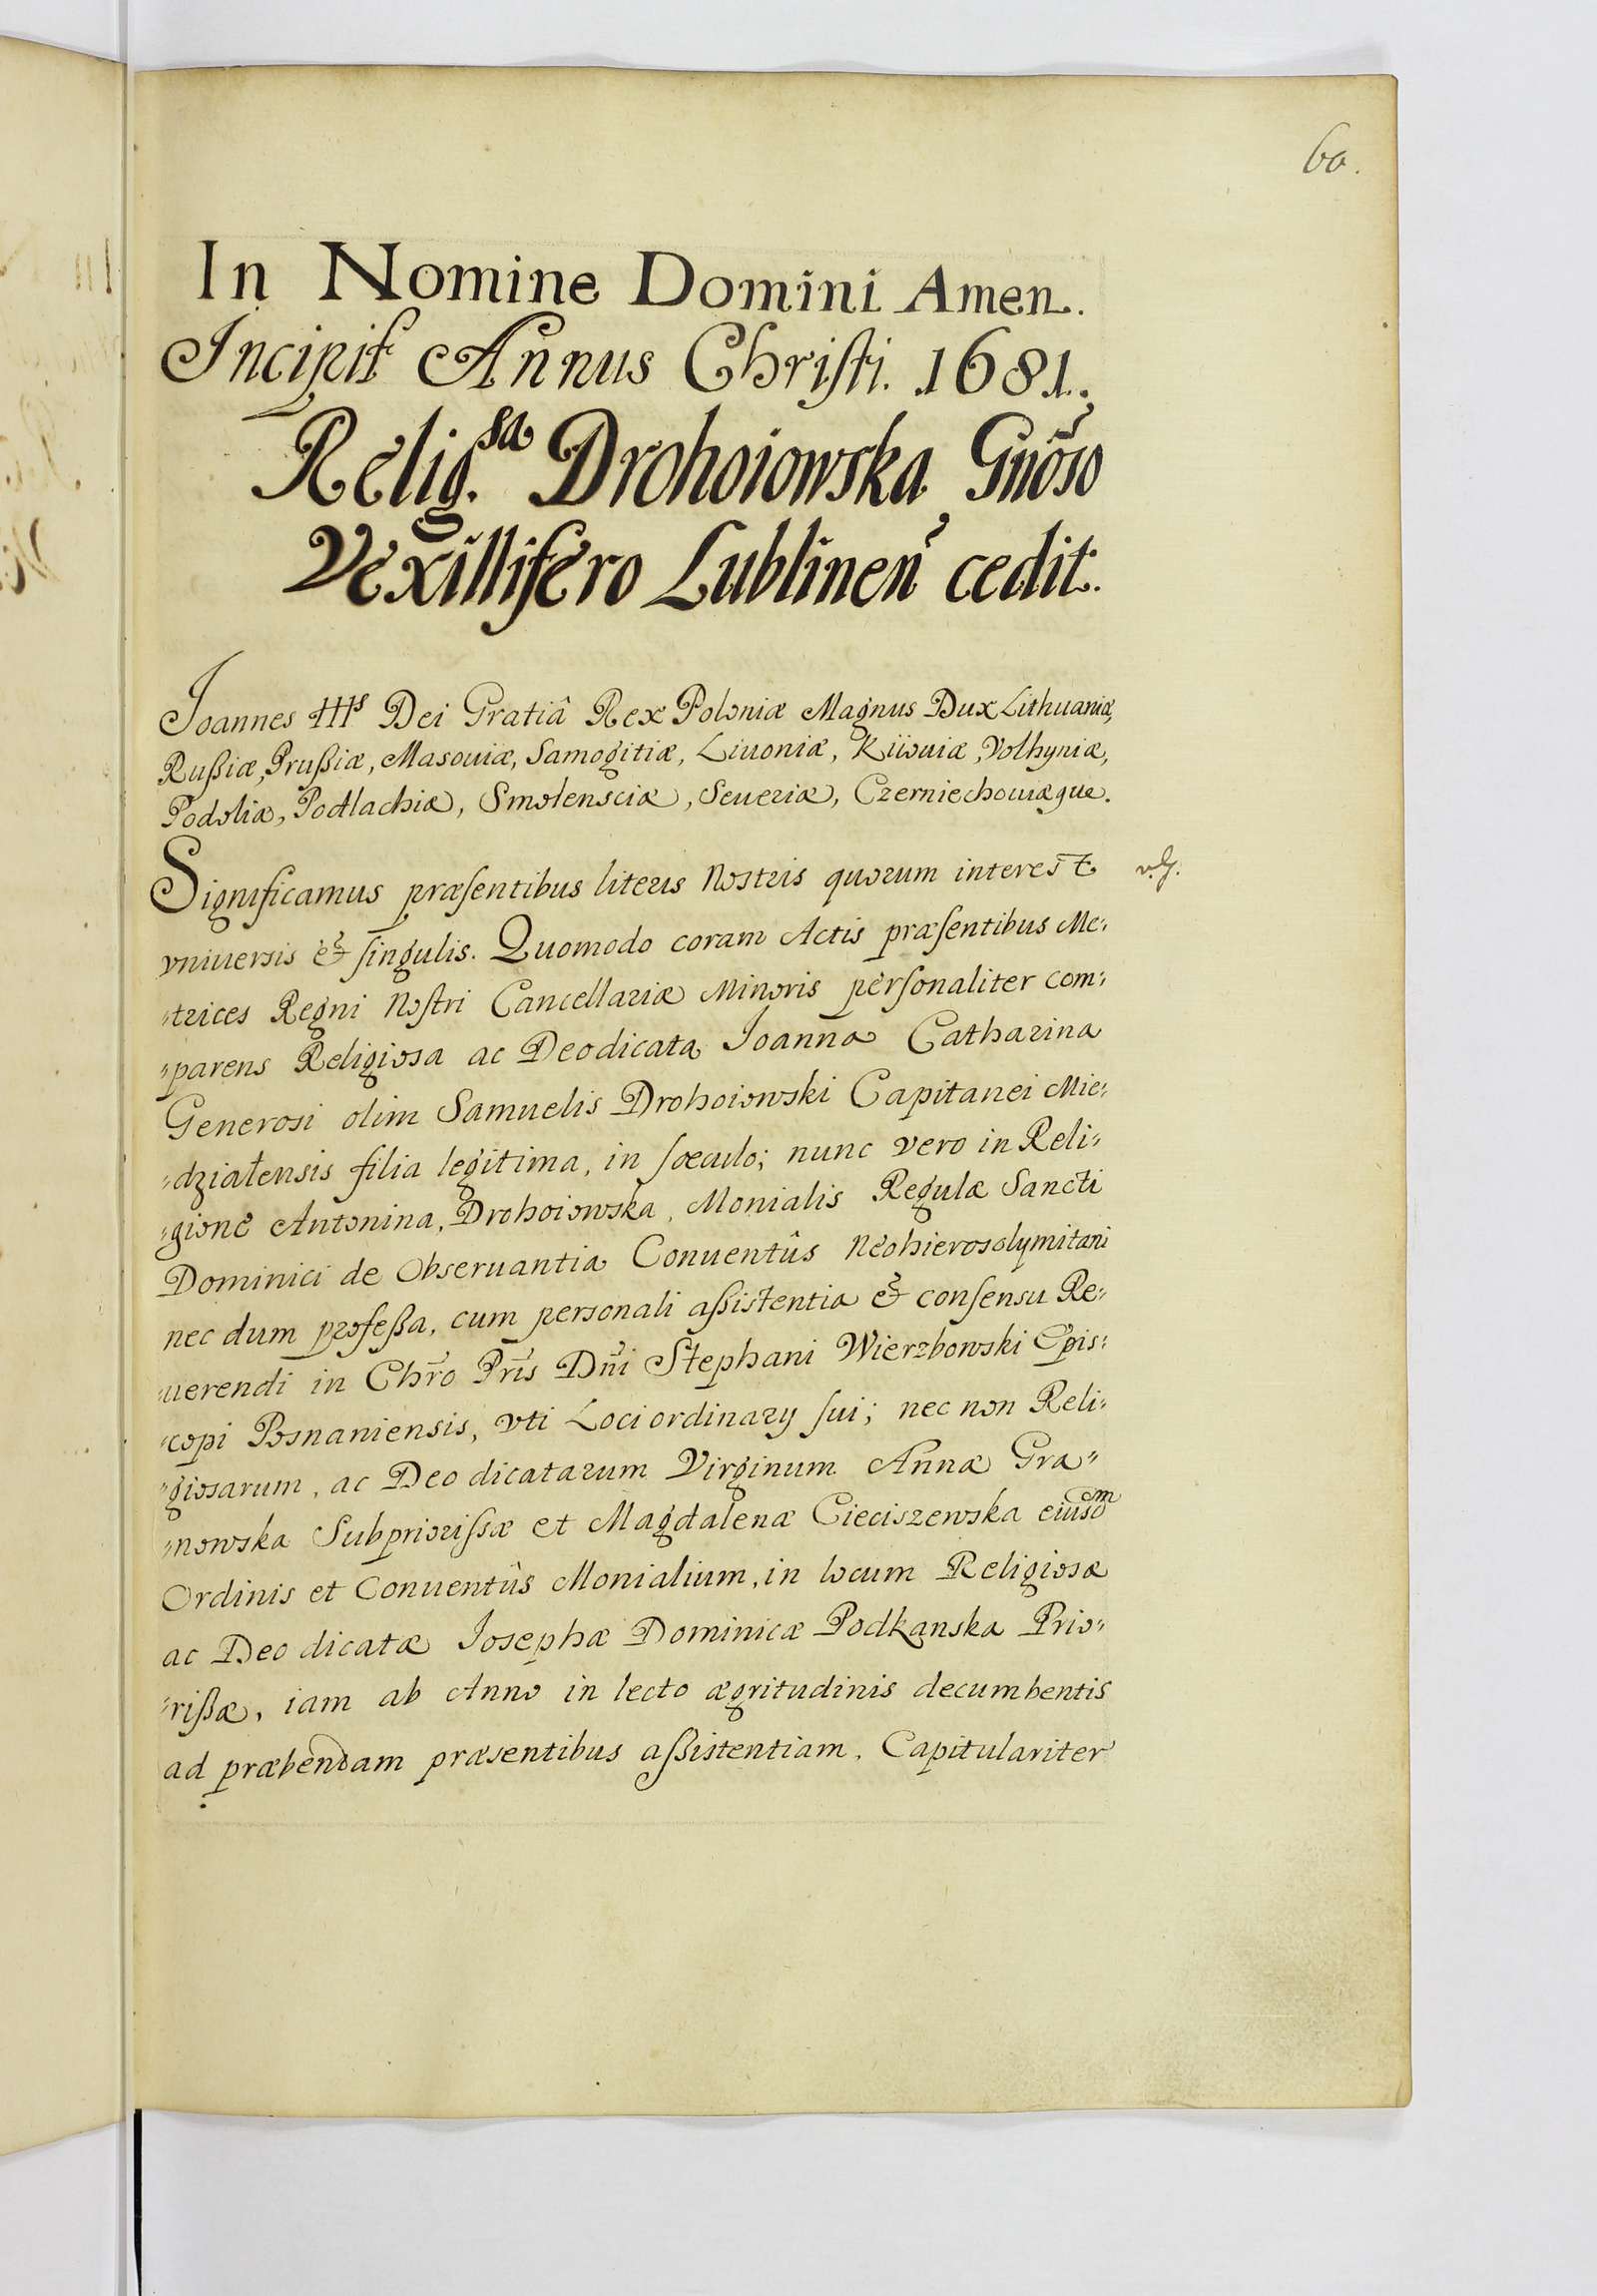 60.
In Nomine Domini Amen.
Incipit Annus Christi. 1681.
Relig.sa Drohoiowska Gnoso
Vexillifero Lublinen cedit.
Joannes IIIs Dei Gratiâ Rex Poloniæ Magnus Dux Lithuaniæ,
Rußiæ, Prußiæ, Masouiæ, Samogitiæ, Liuoniæ, Kiiouiæ, Volhyniæ,
Podoliæ, Podlachiæ, Smolensciæ, Seueriæ, Czerniechouiæque.
Significamus præsentibus literis Nostris quorum interest
vniuersis & singulis. Quomodo coram Actis præsentibus Me:
:trices Regni Nostri Cancellariæ Minoris personaliter com:
:parens Religiosa ac Deodicata Joanna Catharina
Generosi olim Samuelis Drohoiowski Capitanei Mie:
:działensis filia legitima, in sæculo; nunc vero in Reli:
:gione Antonina, Drohoiowska, Monialis Regulæ Sancti
Dominici de Obseruantia Conuentûs Neohierosolymitani
nec dum profeßa, cum personali aßistentia & consensu Re:
:uerendi in Chro Pris Dni Stephani Wierzbowski Epis:
:copi Posnaniensis, vti Loci ordinarij sui; nec non Reli:
:giosarum, ac Deo dicatarum Virginum Annæ Gra:
:nowska Subpriorissæ et Magdalenæ Cieciszewska eiusdm
Ordinis et Conuentûs Monialium, in locum Religiosæ
ac Deo dicatæ Josephæ Dominicæ Podkanska Prio:
:rißæ, iam ab Anno in lecto ægritudinis decumbentis
ad præbendam præsentibus aßistentiam, Capitulariter